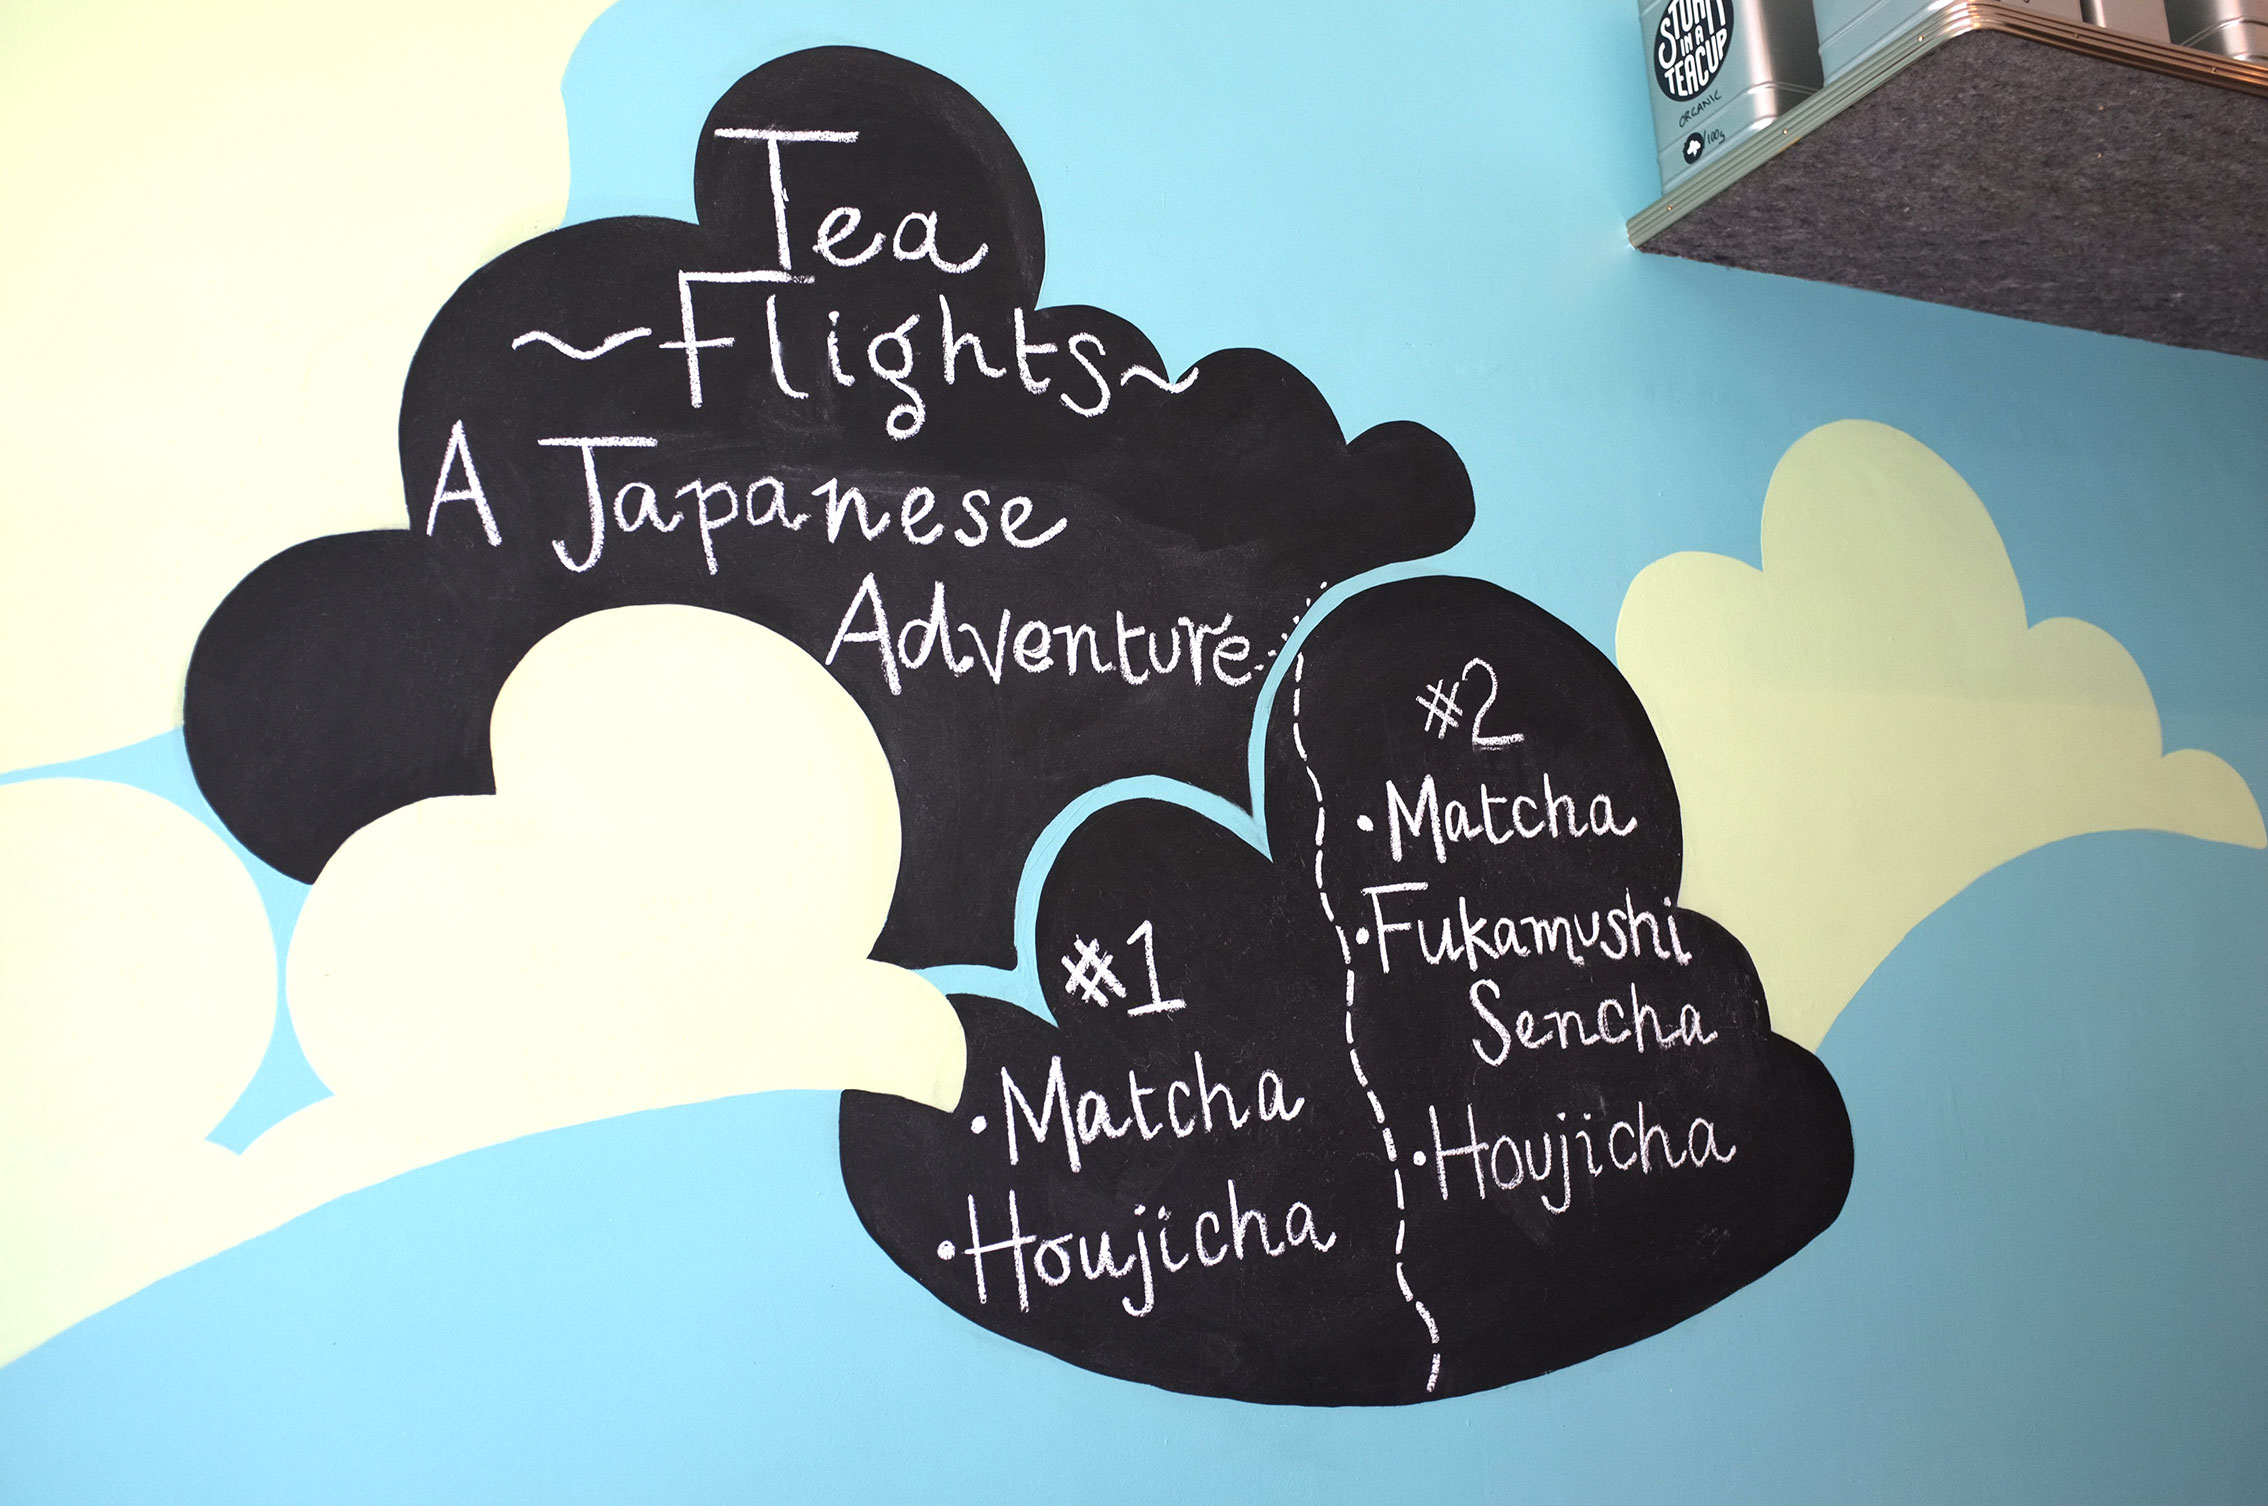 Tea
~Flights~
A Japanese
Adventure...
#1
•Matcha
•Houjicha
#2
•Matcha
•Fukamushi
Sencha
•Houjicha
STORM
IN A
TEACUP
ORGANIC
/100g